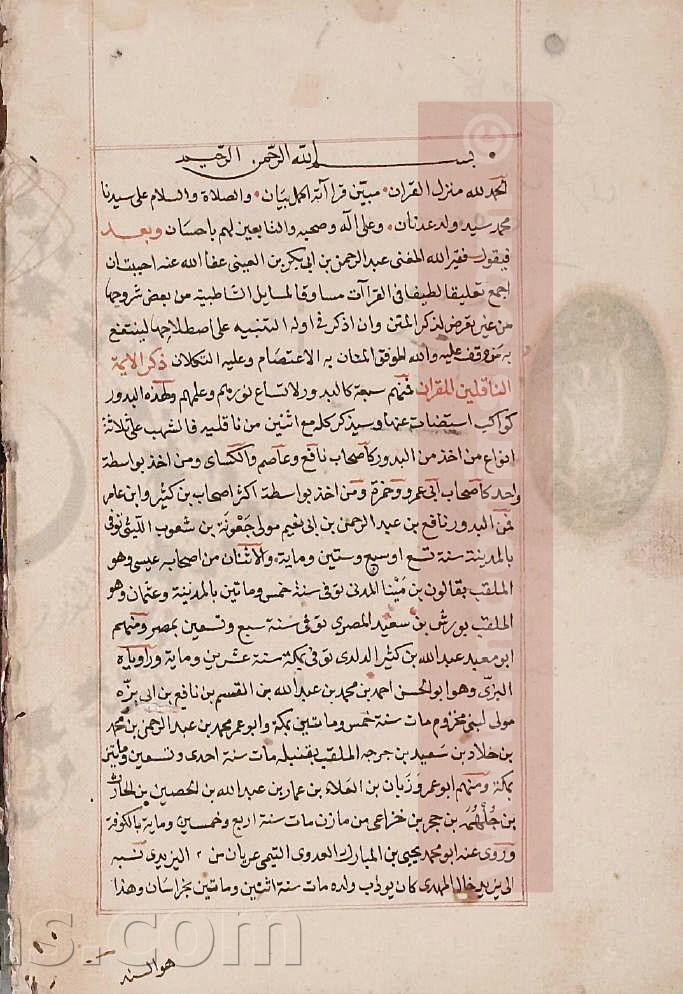 بسم الله الرحمن الرحيم
الحمد لله منزل القران مبين قراآته اكمل بيان والصلاة والسلام على سيدنا
محمد سيد ولد عدنان وعلى اله وصحبه والتابعين لهم باحسان وبعد
فيقول فقير الله المغنى عبد الرحمن بن ابى بكر بن العينى عفا الله عنه احببت ان
اجمع تعليقا لطيفا فى القراآت مساوقا لمسايل الشاطبية من بعض شروحها
من غير تعرض لذكر المتن وان اذكر فى اوله التنبيه على اصطلاحها لينتفع
به من وقف عليه والله الموفق المنان به الاعتصام وعليه التكلان ذكر الايمة
الناقلين للقران فمنهم سبعة كالبدور لاتساع نورهم وعلمهم ولهذه البدور
كواكب استضات عنها وسيذكر كل مع اثنين من ناقليه فالشهب على ثلاثة
انواع من اخذ من البدور كاصحاب نافع وعاصم والكساى ومن اخذ بواسطة
واحد كاصحاب ابى عمرو وحمزة ومن اخذ بواسطة اكثر اصحاب بن كثير وابن عامر
فمن البدور نافع بن عبد الرحمن بن ابى نعيم مولى جعونة بن شعوب الليثى توفى
بالمدينة سنة تسع اوسبع وستين وماية والاثنان من اصحابه عيسى وهو
الملقب بقالون بن مينا المدنى توفى سنة خمس وماتين بالمدينة وعثمان وهو
الملقب بورش بن سعيد المصرى توفى سنة سبع وتسعين بمصر ومنهم
ابو معيد عبد الله بن كثير الدارى توفى بمكة سنة عشرين وماية وراوياه
البزى وهو ابو الحسن احمد بن محمد بن عبد الله بن القسم بن نافع بن ابى بزه
مولى لبنى مخزوم مات سنة خمس وماتين بمكة وابو عمر محمد بن عبد الرحمن بن محمد
بن خلاد بن سعيد بن جرجه الملقب بقنبل مات سنة احدى وتسعين وماتين
بمكة ومنهم ابو عمرو زبان بن العلاء بن عمار بن عبد الله بن الحصين بن الحارث
بن جلهم بن حجر بن خزاعى من مازن مات سنة اربع وخمسين وماية بالكوفة
وروى عنه ابو محمد يحيى بن المبارك العدوى التيمى عريان من اليزيدى نسبه
الى يزيد خال المهدى كان يودب ولده مات سنة اثنين وماتين بخراسان وهذا
هو السند
ns.com